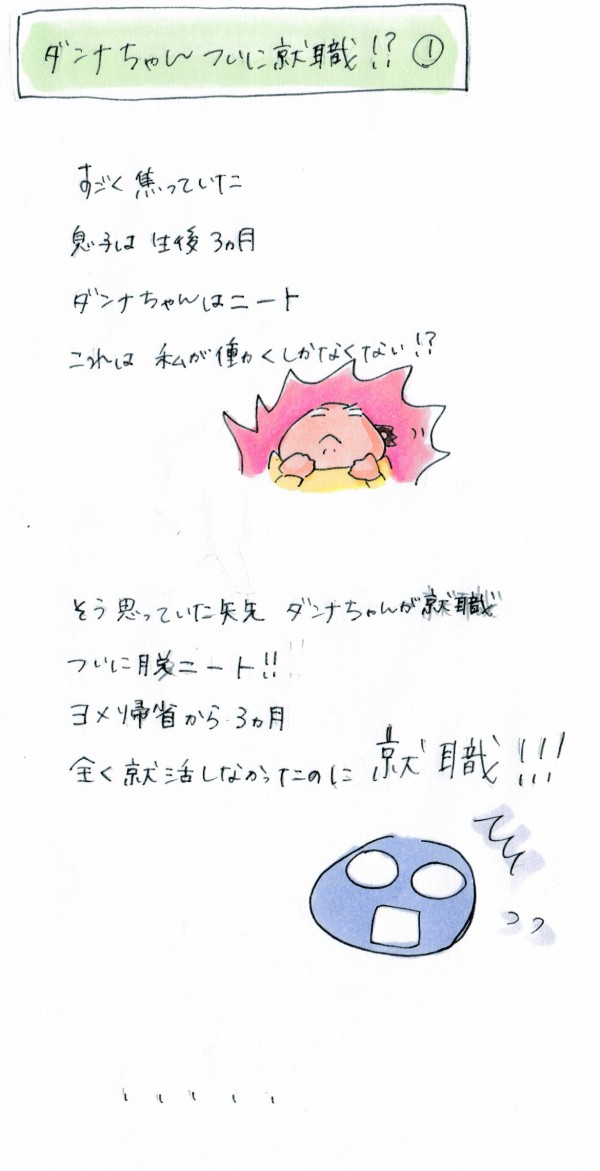 ダンナちゃん ついに就職!? ①
すごく焦っていた
息子は 生後3ヵ月
ダンナちゃんはニート
これは 私が働くしかなくない!?
そう思っていた矢先 ダンナちゃんが就職
ついに脱ニート!!
ヨメリ帰省から3ヵ月
全く就活しなかったのに 就職!!!